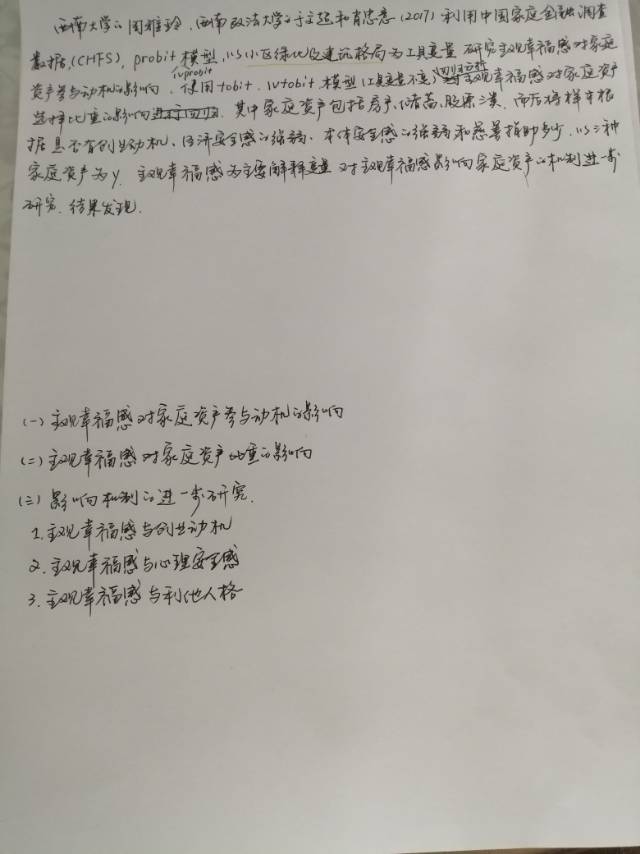 西南大学的周雅玲、西南政法大学的于文超和肖忠意(2017)利用中国家庭金融调查
数据(CHFS), probit模型, 以小区绿化及建筑格局为工具变量 研究主观幸福感对家庭
ivprobit
资产参与动机的影响, 使用tobit. ivtobit模型(工具变量不变) 主观幸福感对家庭资产
选择比重的影响进行回归. 其中家庭资产包括房产、储蓄、股票三类. 而后将样本根
据是否有创业动机、经济安全感的强弱、本体安全感的强弱和慈善捐助多少, 以三种
家庭资产为y, 主观幸福感为主要解释变量 对主观幸福感影响家庭资产的机制进一步
研究. 结果发现.
(一)主观幸福感对家庭资产参与动机的影响
(二)主观幸福感对家庭资产比重的影响
(三)影响机制的进一步研究.
1.主观幸福感与创业动机
2.主观幸福感与心理安全感
3.主观幸福感与利他人格